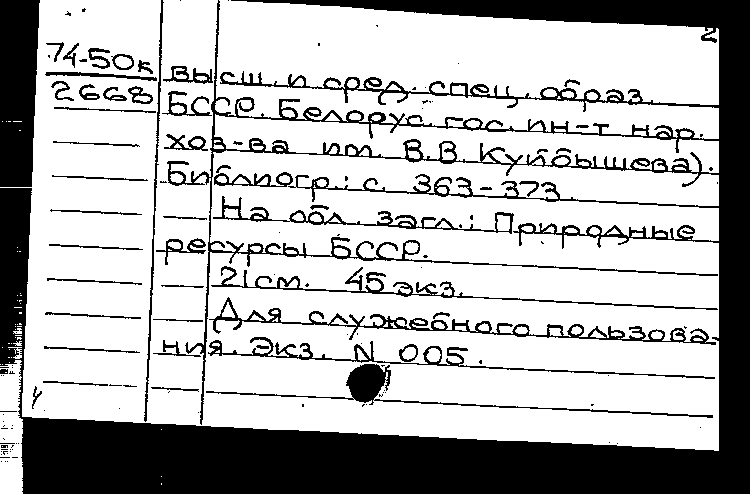 2
74-50к
2668
высш. и сред. спец. образ.
БССР. Белорус. гос. ин-т нар.
хоз-ва им. В.В. Куйбышева).
Библиогр.: с. 363-373.
На обл. загл.: Природные
ресурсы БССР.
21см. 45 экз.
Для служебного пользова-
ния. Экз. N 005.